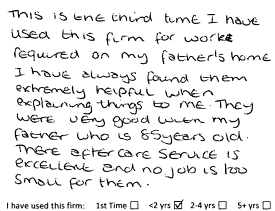 This is the third time I have
used this firm for work
required on my father's home
I have always found them
extremely helpful when
explaining things to me. They
were very good with my
father who is 85 years old.
There aftercare service is
excellent and no job is too
small for them.
I have used this firm: 1st Time ☐ <2 yrs ☑ 2-4 yrs ☐ 5+ yrs ☐